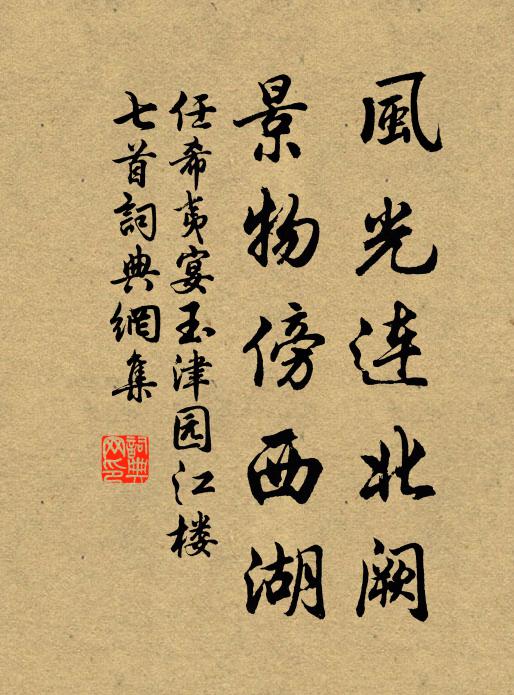 風光連北阙
景物傍西湖
任希夷宴玉津园江楼
七首詞典網集
詞典网印